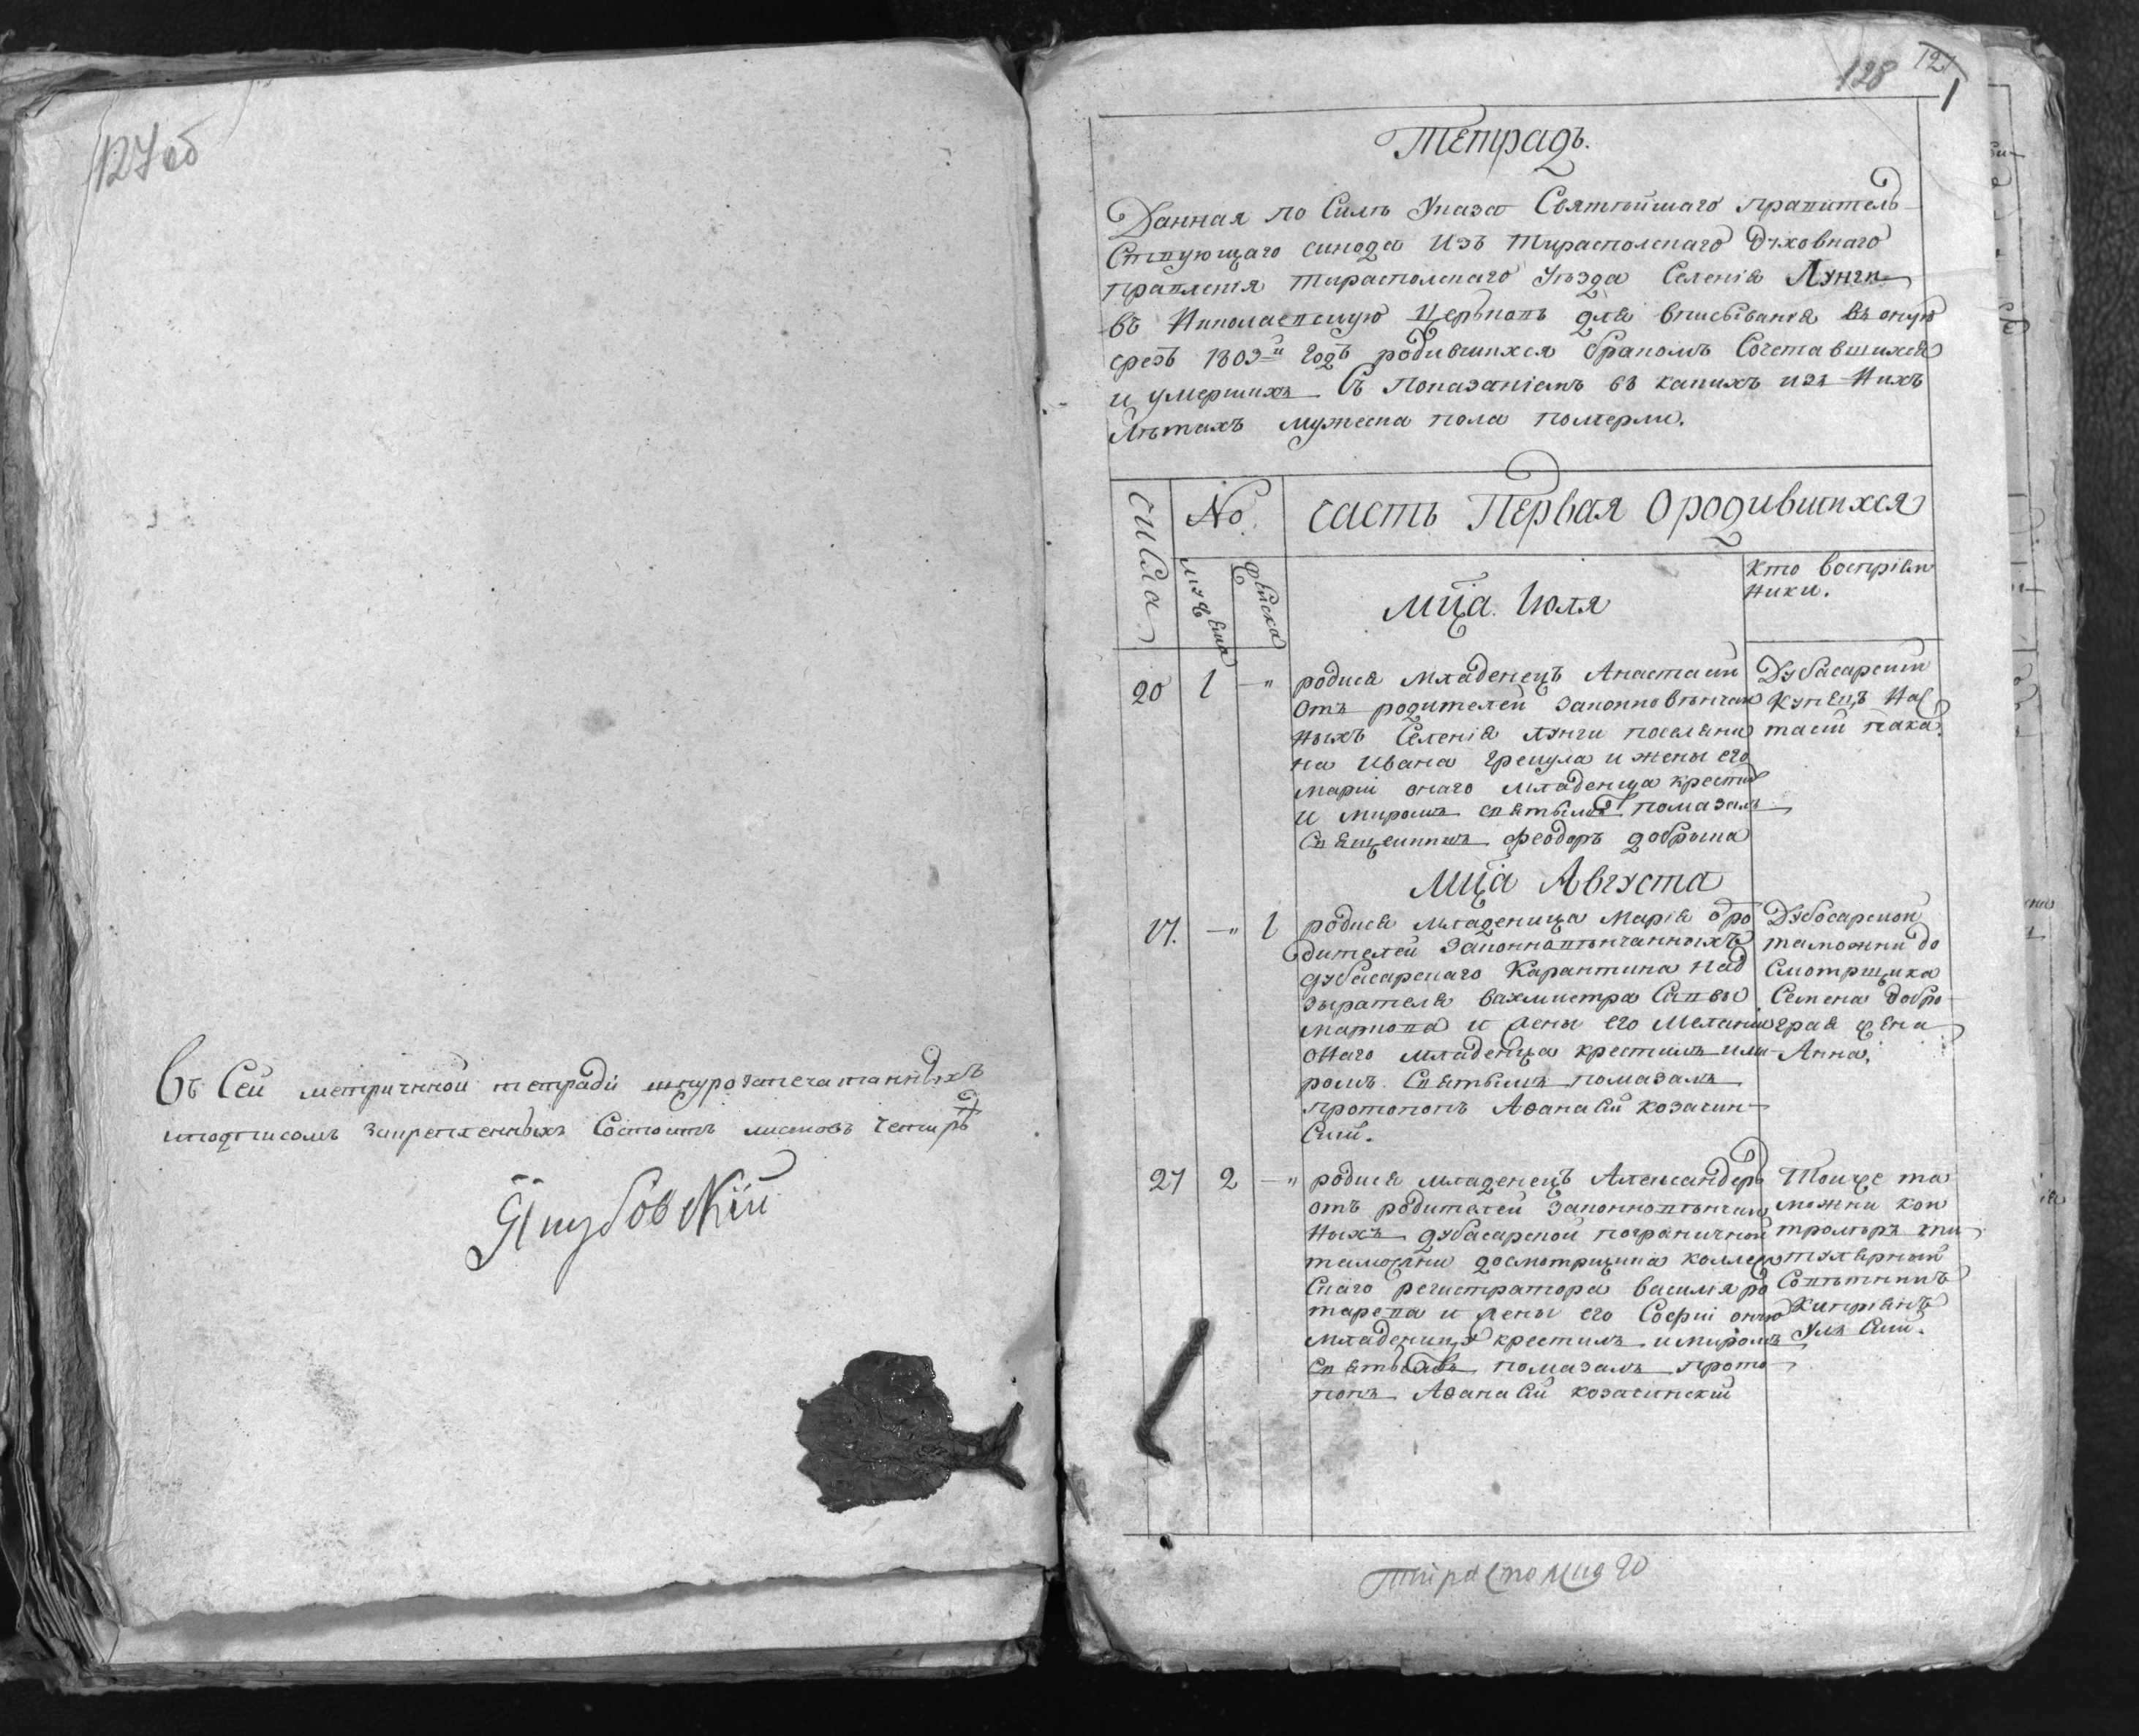 127об
Въ Сей метричной тетради шнурозапечатанныхъ
иподписомъ закрепленныхъ Состоитъ листовъ четыре
Якубовскій
128
121
1
Тетрадь.
Данная по Силѣ Указа Святѣйшаго правитель
Ствующаго синода Изъ Тираспольскаго духовнаго
правленія тираспольскаго Уѣзда Селенія Лунги
въ Николаевскую Церьковь для вписыванія въ оную
срезъ 1803й годъ родившихся бракомъ Сочетавшихся
и умершихъ Съ Показаніемъ въ какихъ изъ Нихъ
лѣтахъ мужеска пола померли.
сисла
No.
састь Первая О родившихся
мужеска
женска
мца. Июля
кто воспріем
ники.
20 1 — "
родися младенецъ Анастасій
отъ родителей законновѣнчан
ныхъ Селенія лунги поселяни
на Ивана грекула и жены его
маріи онаго младенца крестилъ
и миромъ святымъ помазалъ
Священникъ феодоръ доброша
Дубасарскій
купецъ Нас
тасій пака
мца Августа
17. — " 1
родися младеница Марія о ро
дителей Законновѣнчанныхъ
дубасарскаго Карантина над
зырателя вахмистра Саввы
маркова и жены его Меланіи
онаго младенца крестилъ и ми
ромъ Святымъ помазалъ
протопопъ Аѳанасій козасин
Скій.
Дубосарской
таможни до
Смотрщика
Семена добро
грая жена
Анна.
27 2 — "
родися младенецъ Александеръ
отъ родителей законновѣнчан
ныхъ дубасарской пограничной
таможни досмотрщика коллеж
Скаго регистратора василія ро
тарева и жены его Софіи оную
младеницу крестилъ и миромъ
Святымъ помазалъ прото
попъ Аѳанасій козасинскій
Тоище та
можни кон
тролоръ ти
тулярный
Совѣтникъ
Кипріянъ